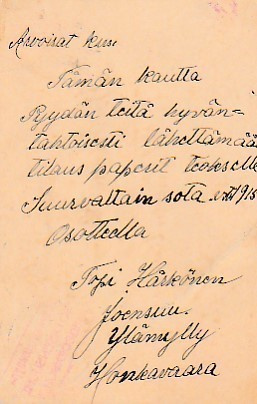 Arvoisat kus.
Tämän kautta
Pyydän teitä hyvän-
tahtoisesti lähettämää
tilaus paperit teokselle
Suurvaltain sota 1915
Osotteella
Topi Härkönen
Joensuu.
Ylämylly
Honkavaara